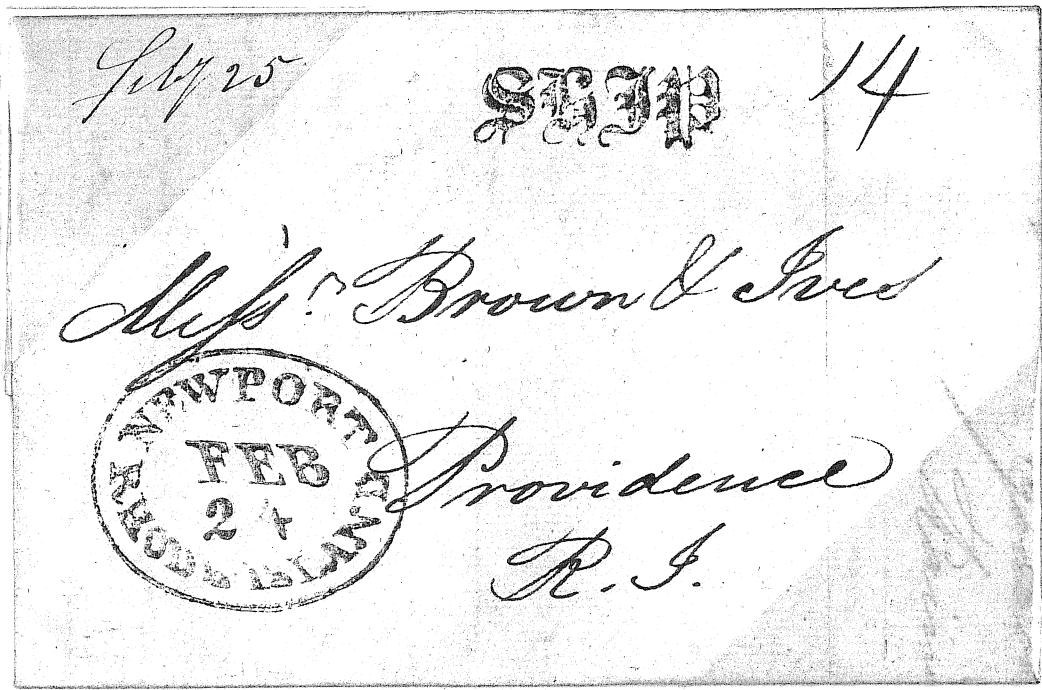 Feby 25
SHIP
14
Messrs Brown & Ives
NEWPORT
FEB
24
RHODE ISLAND
Providence
R. I.